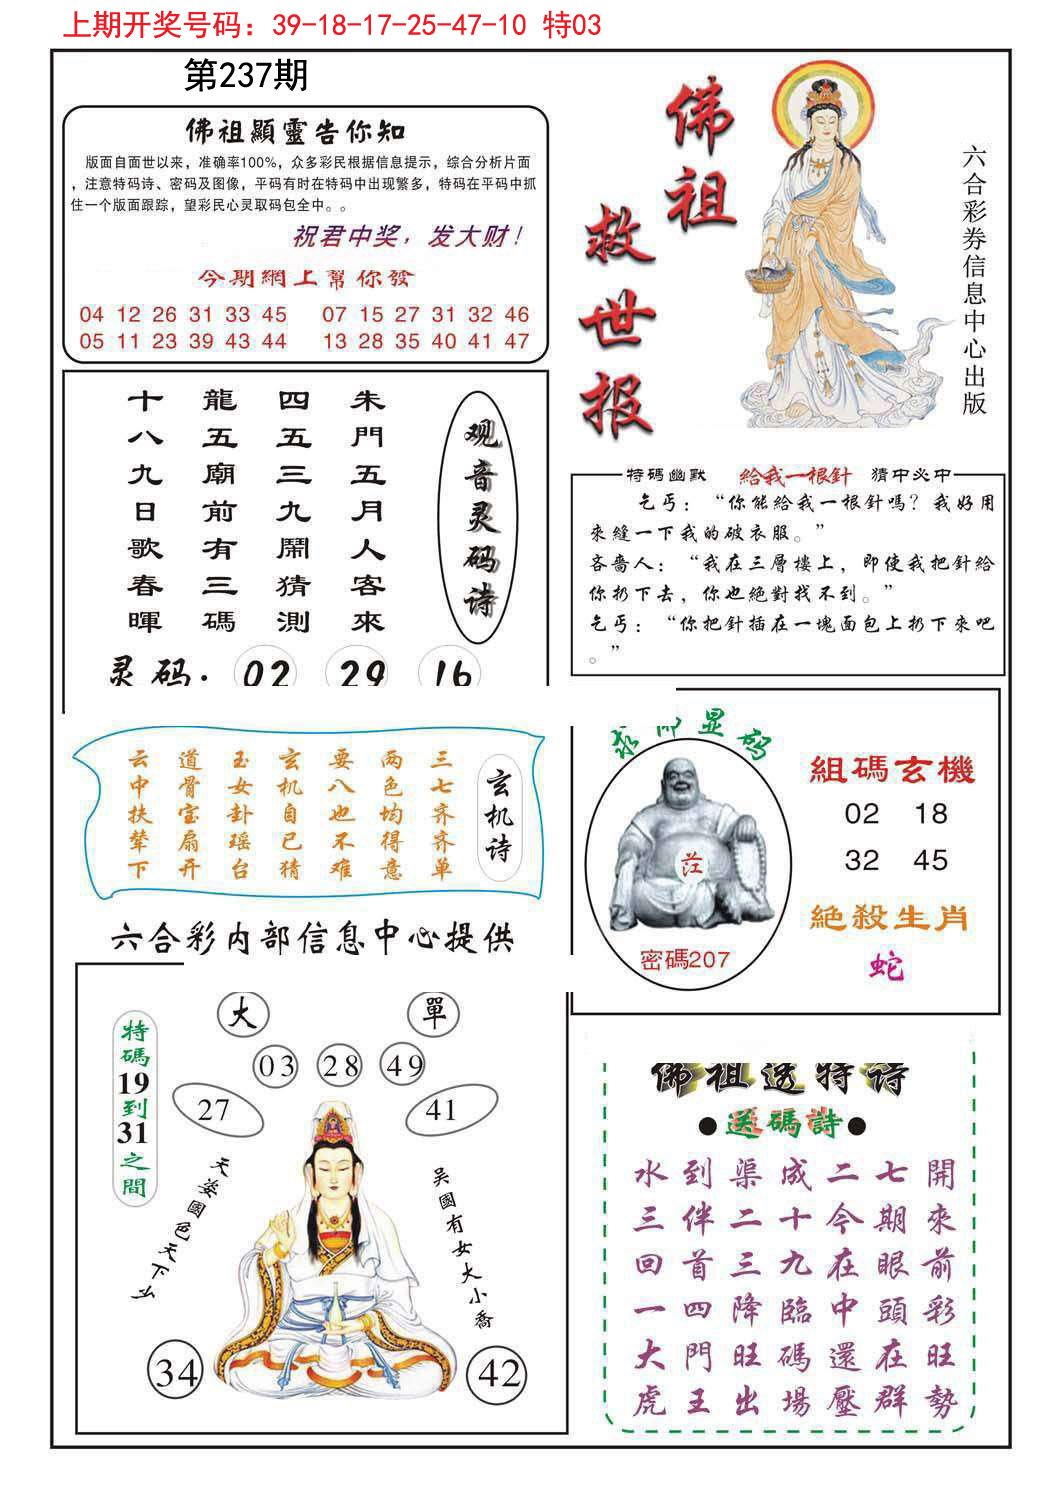 上期开奖号码：39-18-17-25-47-10 特03
第237期
佛祖顯靈告你知
版面自面世以来，准确率100%，众多彩民根据信息提示，综合分析片面
，注意特码诗、密码及图像，平码有时在特码中出现繁多，特码在平码中抓
住一个版面跟踪，望彩民心灵取码包全中。。
祝君中奖，发大财！
今期網上幫你發
04 12 26 31 33 45 07 15 27 31 32 46
05 11 23 39 43 44 13 28 35 40 41 47
佛祖
救世报
六合彩券信息中心出版
观音灵码诗
朱門五月人客來
四五三九鬧猜測
龍五廟前有三碼
十八九日歌春暉
灵码． 02 29 16
特碼幽默 給我一根針 猜中必中
乞丐：“你能給我一根針嗎？我好用
來縫一下我的破衣服。”
吝嗇人：“我在三層樓上，即使我把針給
你扔下去，你也絕對找不到。”
乞丐：“你把針插在一塊面包上扔下來吧
。”
玄机诗
三七齐齐单
两色均得意
要八也不难
玄机自己猜
玉女卦瑶台
道骨宝扇开
云中扶辇下
六合彩内部信息中心提供
显码
密碼207
組碼玄機
02 18
32 45
絕殺生肖
蛇
特碼19到31之間
大 單
03 28 49
27 41
天姿國色天下
吴國有女大小喬
34 42
佛祖透特诗
●送碼詩●
水到渠成二七開
三伴二十今期來
回首三九在眼前
一四降臨中頭彩
大門旺碼還在旺
虎王出場壓群勢